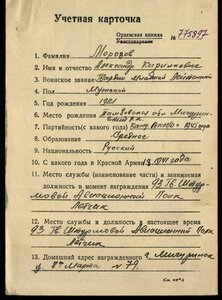 Учетная карточка
Орденская книжка
Удостоверение № 775897
1. Фамилия Морозов
2. Имя и отчество Александр
3. Воинское звание Гвардии Младший Лейтенант
4. Пол Мужской
5. Год рождения 1921
6. Место рождения
7. Партийность(с какого года)
8. Образование Среднее
9. Национальность Русский
10. С какого года в Красной Армии 1941 года
11. Место службы (наименование части) и занимаемая
должность в момент награждения 93 Гв. Штур-
мовой Авиационный Полк
Летчик
12. Место службы и должность в настоящее время
93 Гв Штурмовой Авиационный Полк
Летчик
13. Домашний адрес награжденного г. Мичуринск
ул 8е Марта № 79.